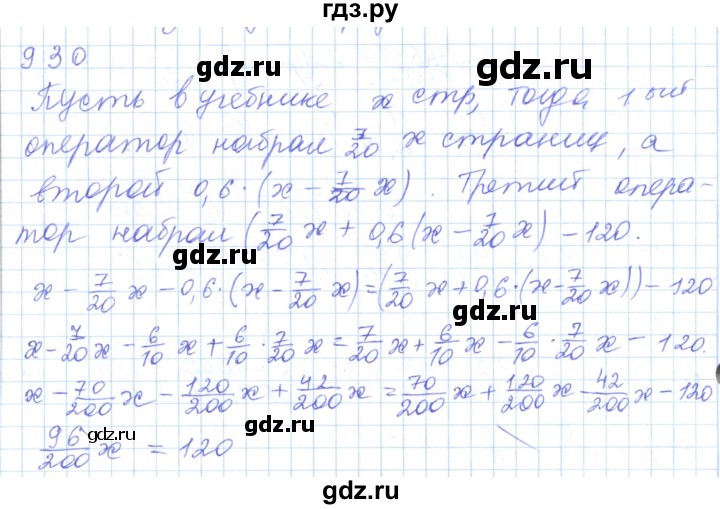 гдз.ру
930 gdz.ru gdz.ru
Пусть в учебнике x стр, тогда 1 ый
оператор набрал 7/20 x страниц, а
второй 0,6·(x − 7/20 x). Третий опера-
тор набрал (7/20 x + 0,6(x − 7/20 x) − 120.
x − 7/20 x − 0,6·(x − 7/20 x) = (7/20 x + 0,6·(x − 7/20 x)) − 120
x − 7/20 x − 6/10 x + 6/10 · 7/20 x = 7/20 x + 6/10 x − 6/10 · 7/20 x − 120.
x − 70/200 x − 120/200 x + 42/200 x = 70/200 x + 120/200 x − 42/200 x − 120
96/200 x = 120
gdz.ru gdz.ru
gdz.ru